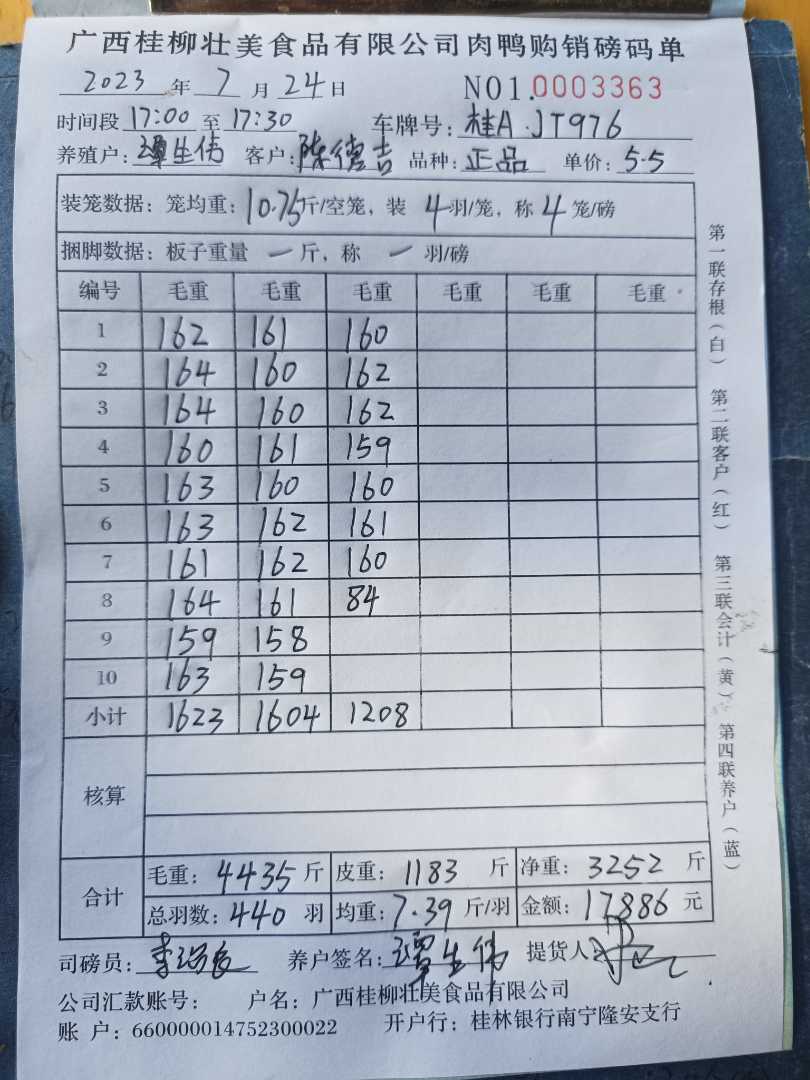 广西桂柳壮美食品有限公司肉鸭购销磅码单
2023 年 7 月 24 日 NO1.0003363
时间段 17:00 至 17:30 车牌号: 桂A·JT976
养殖户: 谭生伟 客户: 陈德吉 品种: 正品 单价: 5.5
装笼数据: 笼均重: 10.75 斤/空笼, 装 4 羽/笼, 称 4 笼/磅
捆脚数据: 板子重量 一 斤, 称 一 羽/磅
编号 毛重 毛重 毛重 毛重 毛重 毛重
1 162 161 160
2 164 160 162
3 164 160 162
4 160 161 159
5 163 160 160
6 163 162 161
7 161 162 160
8 164 161 84
9 159 158
10 163 159
小计 1623 1604 1208
核算
合计 毛重: 4435 斤 皮重: 1183 斤 净重: 3252 斤
总羽数: 440 羽 均重: 7.39 斤/羽 金额: 17886 元
司磅员: 养户签名: 谭生伟 提货人:
公司汇款账号: 户名: 广西桂柳壮美食品有限公司
账 户: 660000014752300022 开户行: 桂林银行南宁隆安支行
第一联存根(白) 第二联客户(红) 第三联会计(黄) 第四联养户(蓝)